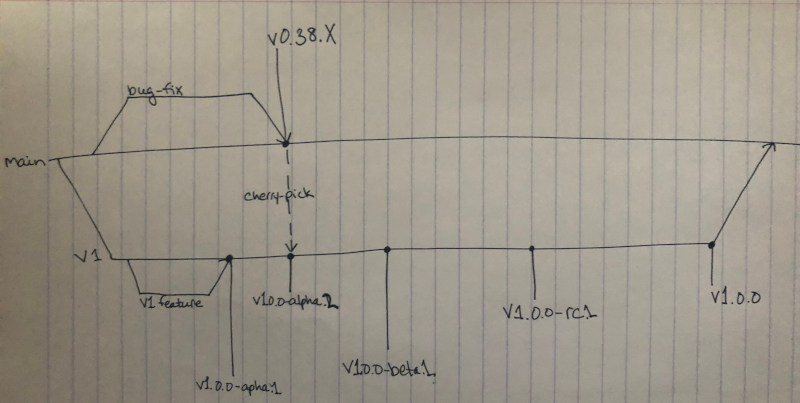 v0.38.X
bug-fix
Main
cherry-pick
V1
V1 feature
V1.0.0-alpha.2
V1.0.0-rc.1
V1.0.0
V1.0.0-beta.1
V1.0.0-apha.1